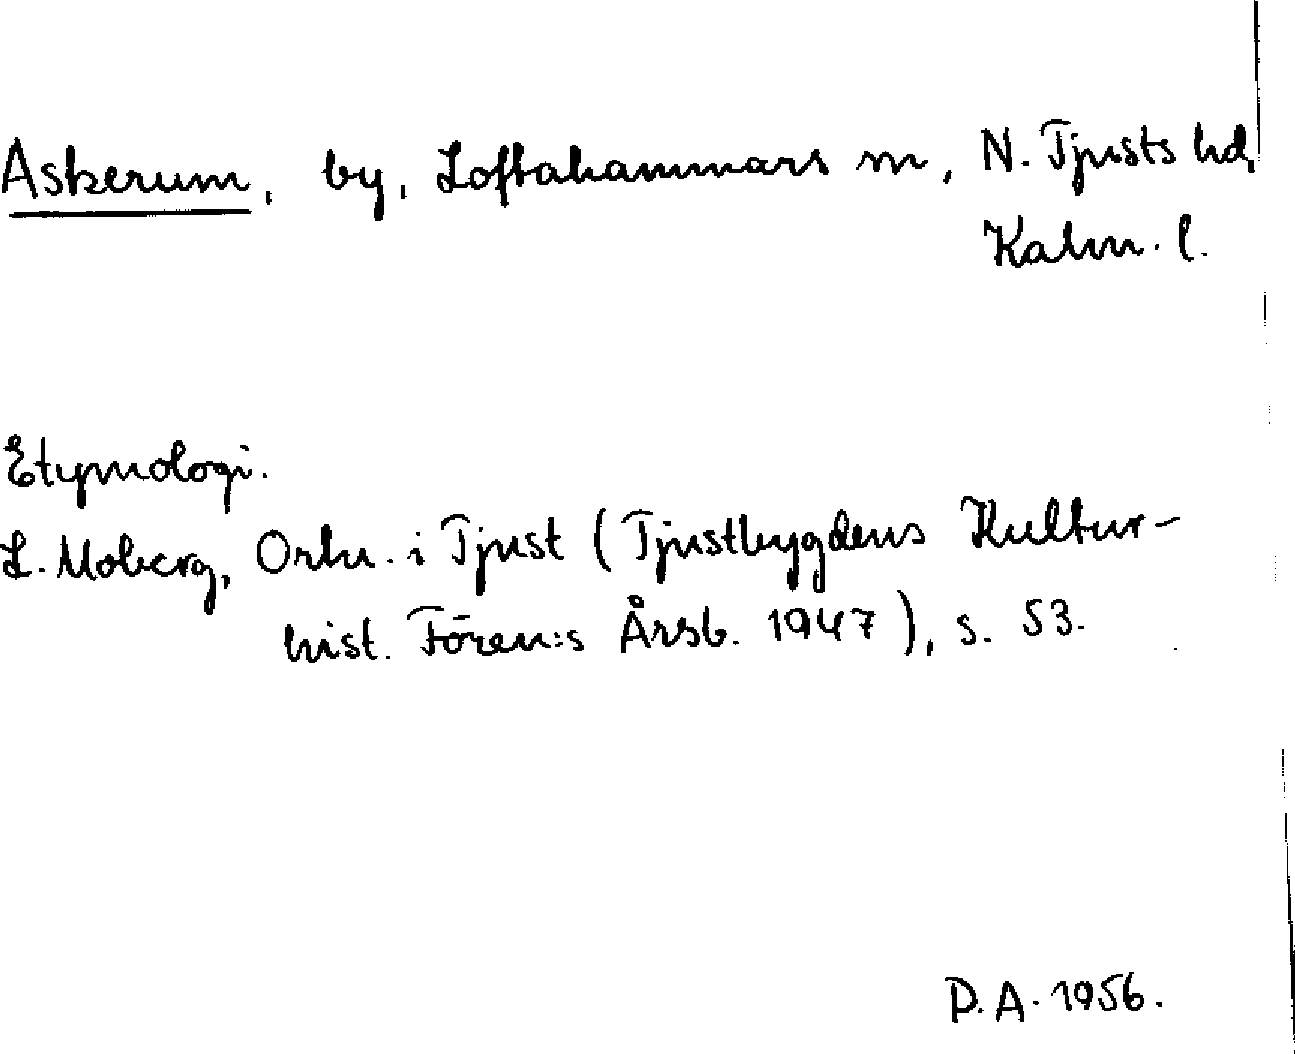 Askerum, by, Loftahammars sn, N. Tjusts hd,
Kalm. l.
Etymologi.
L. Moberg, Ortn. i Tjust (Tjustbygdens Kultur-
hist. Fören:s Årsb. 1947), s. 53.
D. A. 1956.